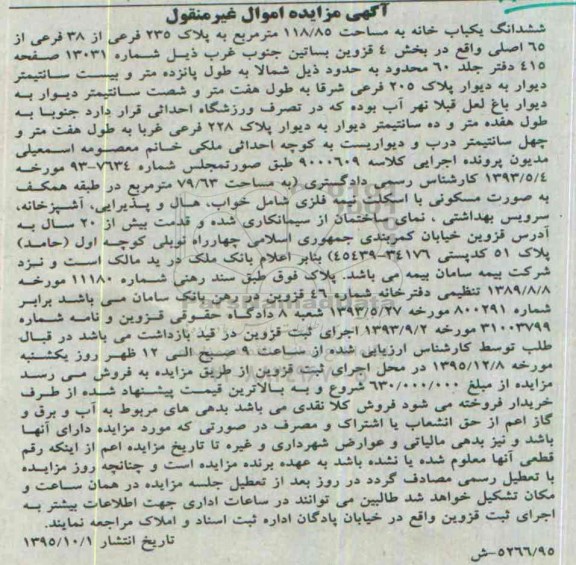 آگهی مزایده اموال غیرمنقول
ششدانگ یکباب خانه به مساحت ۱۱۸/۸۵ مترمربع به پلاک ۲۳۵ فرعی از ۳۸ فرعی از
۶۵ اصلی واقع در بخش ۴ قزوین بساتین جنوب غرب ذیل شماره ۱۳۰۳۱ صفحه
۴۱۵ دفتر جلد ۶۰ محدود به حدود ذیل شمالا به طول پانزده متر و بیست سانتیمتر
دیوار به دیوار پلاک ۲۰۵ فرعی شرقا به طول هفت متر و شصت سانتیمتر دیوار به
دیوار باغ لعل قبلا نهر آب بوده که در تصرف ورزشگاه احداثی قرار دارد جنوبا به
طول هفده متر و ده سانتیمتر دیوار به دیوار پلاک ۲۲۸ فرعی غربا به طول هفت متر و
چهل سانتیمتر درب و دیواریست به کوچه احداثی ملکی خانم معصومه اسمعیلی
مدیون پرونده اجرایی کلاسه ۹۰۰۰۶۰۹ طبق صورتمجلس شماره ۷۶۳۴-۹۳ مورخه
۱۳۹۳/۵/۴ کارشناس رسمی دادگستری (به مساحت ۷۹/۶۳ مترمربع در طبقه همکف
به صورت مسکونی با اسکلت نیمه فلزی شامل خواب، هال و پذیرایی، آشپزخانه،
سرویس بهداشتی ، نمای ساختمان از سیمانکاری شده و قدمت بیش از ۲۰ سال به
آدرس قزوین خیابان کمربندی جمهوری اسلامی چهارراه نوبلی کوچه اول (حامد)
پلاک ۵۱ کدپستی ۳۴۱۷۶-۴۵۴۳۹) بنابر اعلام بانک ملک در ید مالک است و نزد
شرکت بیمه سامان بیمه می باشد. پلاک فوق طبق سند رهنی شماره ۱۱۱۸۰ مورخه
۱۳۸۹/۸/۸ تنظیمی دفترخانه شماره قزوین در رهن بانک سامان می باشد برابر
شماره ۸۰۰۲۹۱ مورخه ۱۳۹۳/۵/۲۷ شعبه ۸ دادگاه حقوقی قزوین و نامه شماره
۳۱۰۰۳۷۹۹ مورخه ۱۳۹۳/۹/۲ اجرای ثبت قزوین در قید بازداشت می باشد در قبال
طلب توسط کارشناس ارزیابی شده از ساعت ۹ صبح الی ۱۲ ظهر روز یکشنبه
مورخه ۱۳۹۵/۱۲/۸ در محل اجرای ثبت قزوین از طریق مزایده به فروش می رسد
مزایده از مبلغ ۶۳۰/۰۰۰/۰۰۰ شروع و به بالاترین قیمت پیشنهاد شده از طرف
خریدار فروخته می شود فروش کلا نقدی می باشد بدهی های مربوط به آب و برق و
گاز اعم از حق انشعاب یا اشتراک و مصرف در صورتی که مورد مزایده دارای آنها
باشد و نیز بدهی مالیاتی و عوارض شهرداری و غیره تا تاریخ مزایده اعم از اینکه رقم
قطعی آنها معلوم شده یا نشده باشد به عهده برنده مزایده است و چنانچه روز مزایده
با تعطیل رسمی مصادف گردد در روز بعد از تعطیل جلسه مزایده در همان ساعت و
مکان تشکیل خواهد شد طالبین می توانند در ساعات اداری جهت اطلاعات بیشتر به
اجرای ثبت قزوین واقع در خیابان پادگان اداره ثبت اسناد و املاک مراجعه نمایند.
تاریخ انتشار ۱۳۹۵/۱۰/۱
۵۲۶۶/۹۵-ش